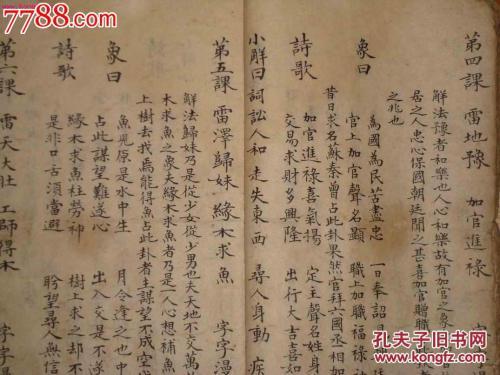 7788.com
第四課 雷地豫 加官進祿
解法豫者和樂也人心和樂故有加官之象
居之人忠心保國朝廷聞之甚喜加官贈職
之兆也
象曰 為國為民苦盡忠 一日奉詔見
官上加官聲名顯 職上加職福祿
昔日求名蘇秦曾占此卦果然官拜六國丞相加
詩歌 加官進祿喜氣揚 定主聲名姓身
交易求財多興隆 出行大吉喜如
小解曰 詞訟人和 走失東西 尋人身動 疾
第五課 雷澤歸妹 緣木求魚 字字漫
解法歸妹乃是從少女從少男也夫天地不交萬
木求魚之象夫緣木求魚者乃是一人心想補魚
上樹去我焉能得魚占此卦者主謀望不成空
象曰 魚兒原是水中生 月令逢之也中
占此謀望難遂心 出入交易是不遂
詩歌 緣木求魚枉勞神 樹上求之却不
是非口舌須當避 盼望尋人無信
第六課 雷天大壯 工師得木 字字
孔夫子旧书网
www.kongfz.com